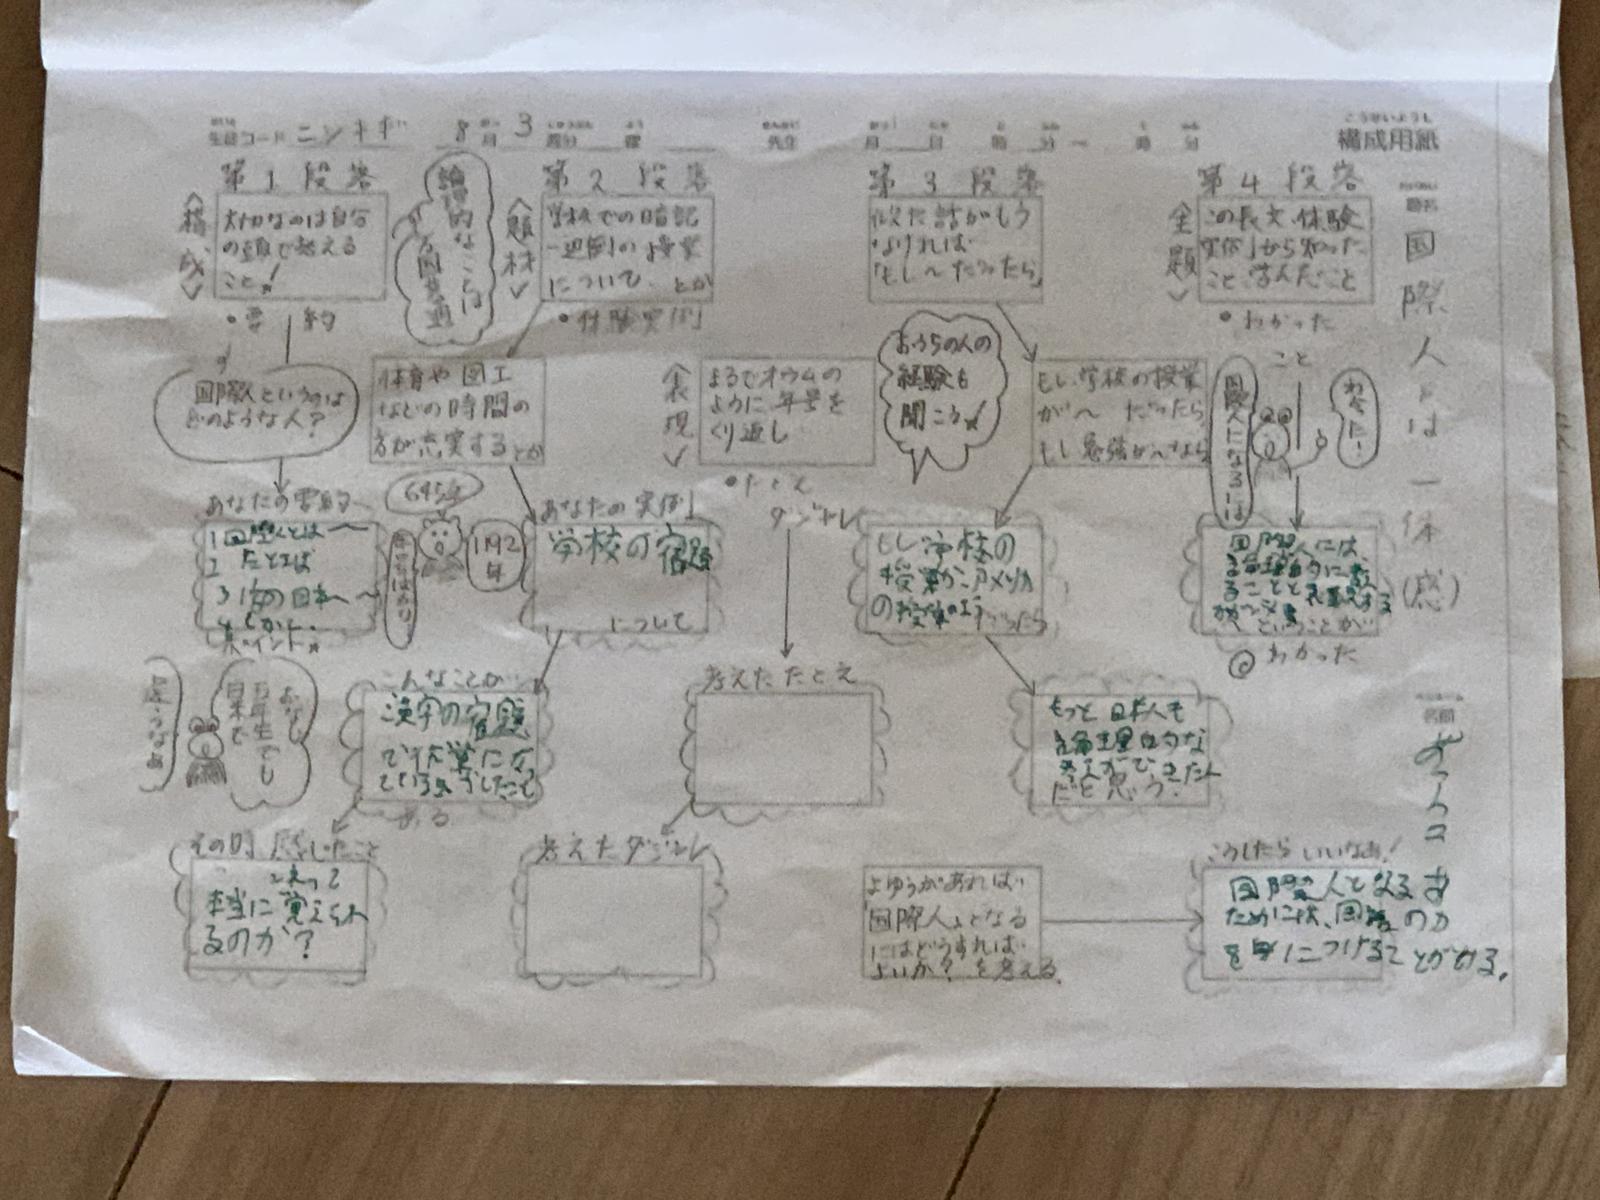 構成用紙
生徒コード ニンキギ 8月 3週分
先生 月 日 時 分〜 時 分
題名 国際人とは一体(感)
名前
第1段落
〈構成〉
大切なのは自分
の頭で考える
こと!
・要約
論理的なことは
万国共通
国際人というのは
どのような人?
あなたの要約
1国際人とは〜
2 たとえば
3 次の日本〜
4 しかし、
ポイント
第2段落
〈題材〉
学校での暗記
一辺倒の授業
について とか
・体験実例
体育や図工
などの時間の
方が充実するとか
645年
1192年
あなたの実例
学校の宿題
について
こんなことが
漢字の宿題
ある
おなじ
五年生でも
日本で
違うなあ
その時感じたこと
本当に覚えられ
るのか?
第3段落
似た話がもう
なければ
「もし〜だったら」
〈表現〉
まるでオウムの
ように年号を
くり返し
・たとえ
ダジャレ
おうちの人の
経験も
聞こう
もし学校の授業
が〜だったら
もし学校の
授業がアメリカ
の授業の
だったら
考えたたとえ
考えたダジャレ
もっと日本人も
論理的な
だと思う。
第4段落
〈全題〉
この長文・体験
実例から知った
こと学んだこと
・わかった
こと
国際人になるには
わかった!
国際人には、
ということが
◎わかった
よゆうがあれば
「国際人」となる
にはどうすれば
よいか?を考える
こうしたらいいなあ!
国際人となる
ためには、国語の力
を身につけることがいる。